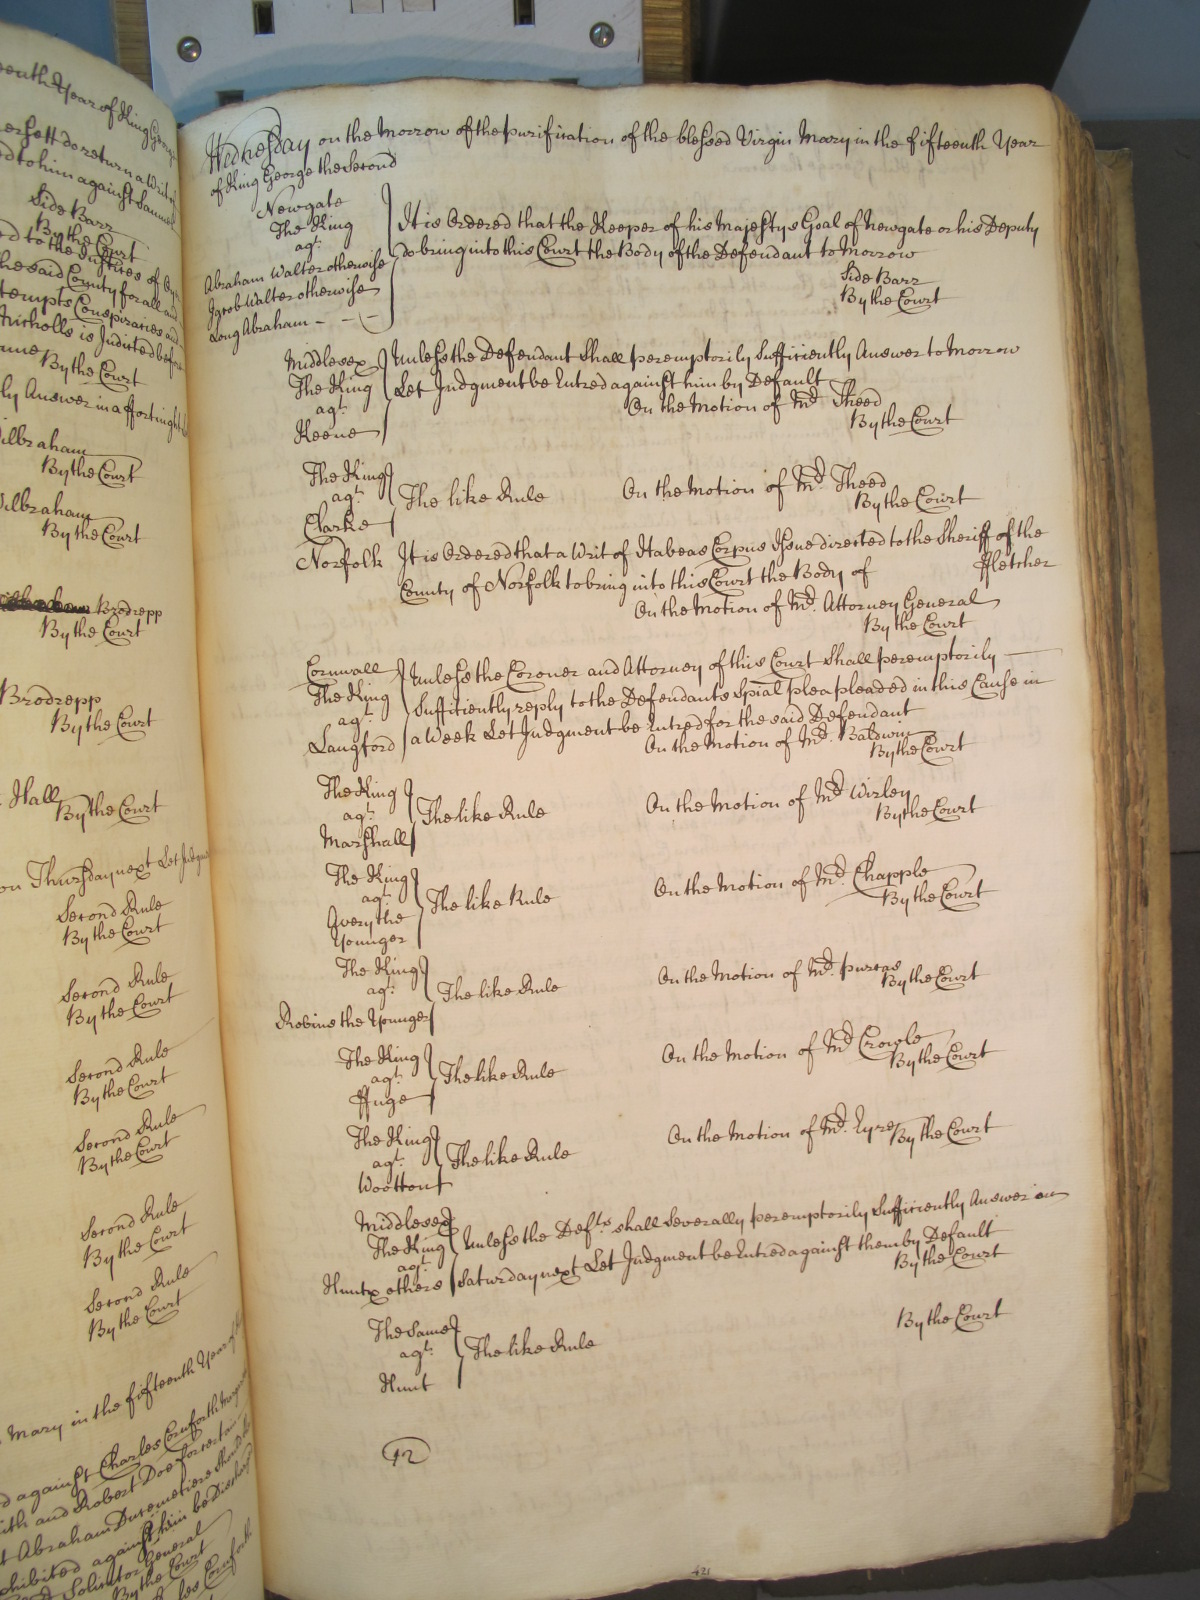 eenth Year of King George
ersett do return a Writ
ed to him against Samuel
Side Barr
By the Court
ed to the Justices of
he said County for all and
tempts Conspiracies and
Nicholls is Indicted before
By the Court
ly Answer in a ffortnight
ilbraham
By the Court
Wilbraham
By the Court
Brodrepp
By the Court
Brodrepp
By the Court
Hall
By the Court
on Thursday next Let Judgm
Second Rule
By the Court
Second Rule
By the Court
Second Rule
By the Court
Second Rule
By the Court
Second Rule
By the Court
Second Rule
By the Court
Mary in the fifteenth Year of the
d against Charles Cornforth
ith and Robert Doe for certain
t Abraham Dunmetiere should be
xhibited against him be Discharged
Solicitor General
By the Court
les Cornforth
Wednesday on the Morrow of the purification of the blessed Virgin Mary in the fifteenth Year
of King George the Second
Newgate
The King
agt.
Abraham Walter otherwise
Jacob Walter otherwise
Long Abraham - - -
It is Ordered that the Keeper of his Majestys Goal of Newgate or his Deputy
do bring into this Court the Body of the Defendant to Morrow
Side Barr
By the Court
Middlesex
The King
agt.
Keene
Unless the Defendant Shall peremptorily Sufficiently Answer to Morrow
Let Judgment be Entred against him by Default
On the Motion of Mr. Theed
By the Court
The King
agt.
Clarke
The like Rule
On the Motion of Mr. Theed
By the Court
Norfolk
It is Ordered that a Writ of Habeas Corpus Issue directed to the Sheriff of the
County of Norfolk to bring into this Court the Body of ffletcher
On the Motion of Mr. Attorney General
By the Court
Cornwall
The King
agt.
Langford
Unless the Coroner and Attorney of this Court Shall peremptorily
Sufficiently reply to the Defendants Spial plea pleaded in this Cause in
a Week Let Judgment be Entred for the said Defendant
On the Motion of Mr. Baldwin
By the Court
The King
agt.
Marshall
The like Rule
On the Motion of Mr. Wirley
By the Court
The King
agt.
Avery the
Younger
The like Rule
On the Motion of Mr. Chapple
By the Court
The King
agt.
Robins the Younger
The like Rule
On the Motion of Mr. purcas
By the Court
The King
agt.
ffuge
The like Rule
On the Motion of Mr. Crowle
By the Court
The King
agt.
Wootton
The like Rule
On the Motion of Mr. Eyre
By the Court
Middlesex
The King
agt.
Hunt & others
Unless the Defts. shall Severally peremptorily Sufficiently Answer on
Saturday next Let Judgment be Entred against them by Default
By the Court
The Same
agt.
Hunt
The like Rule
By the Court
12
421